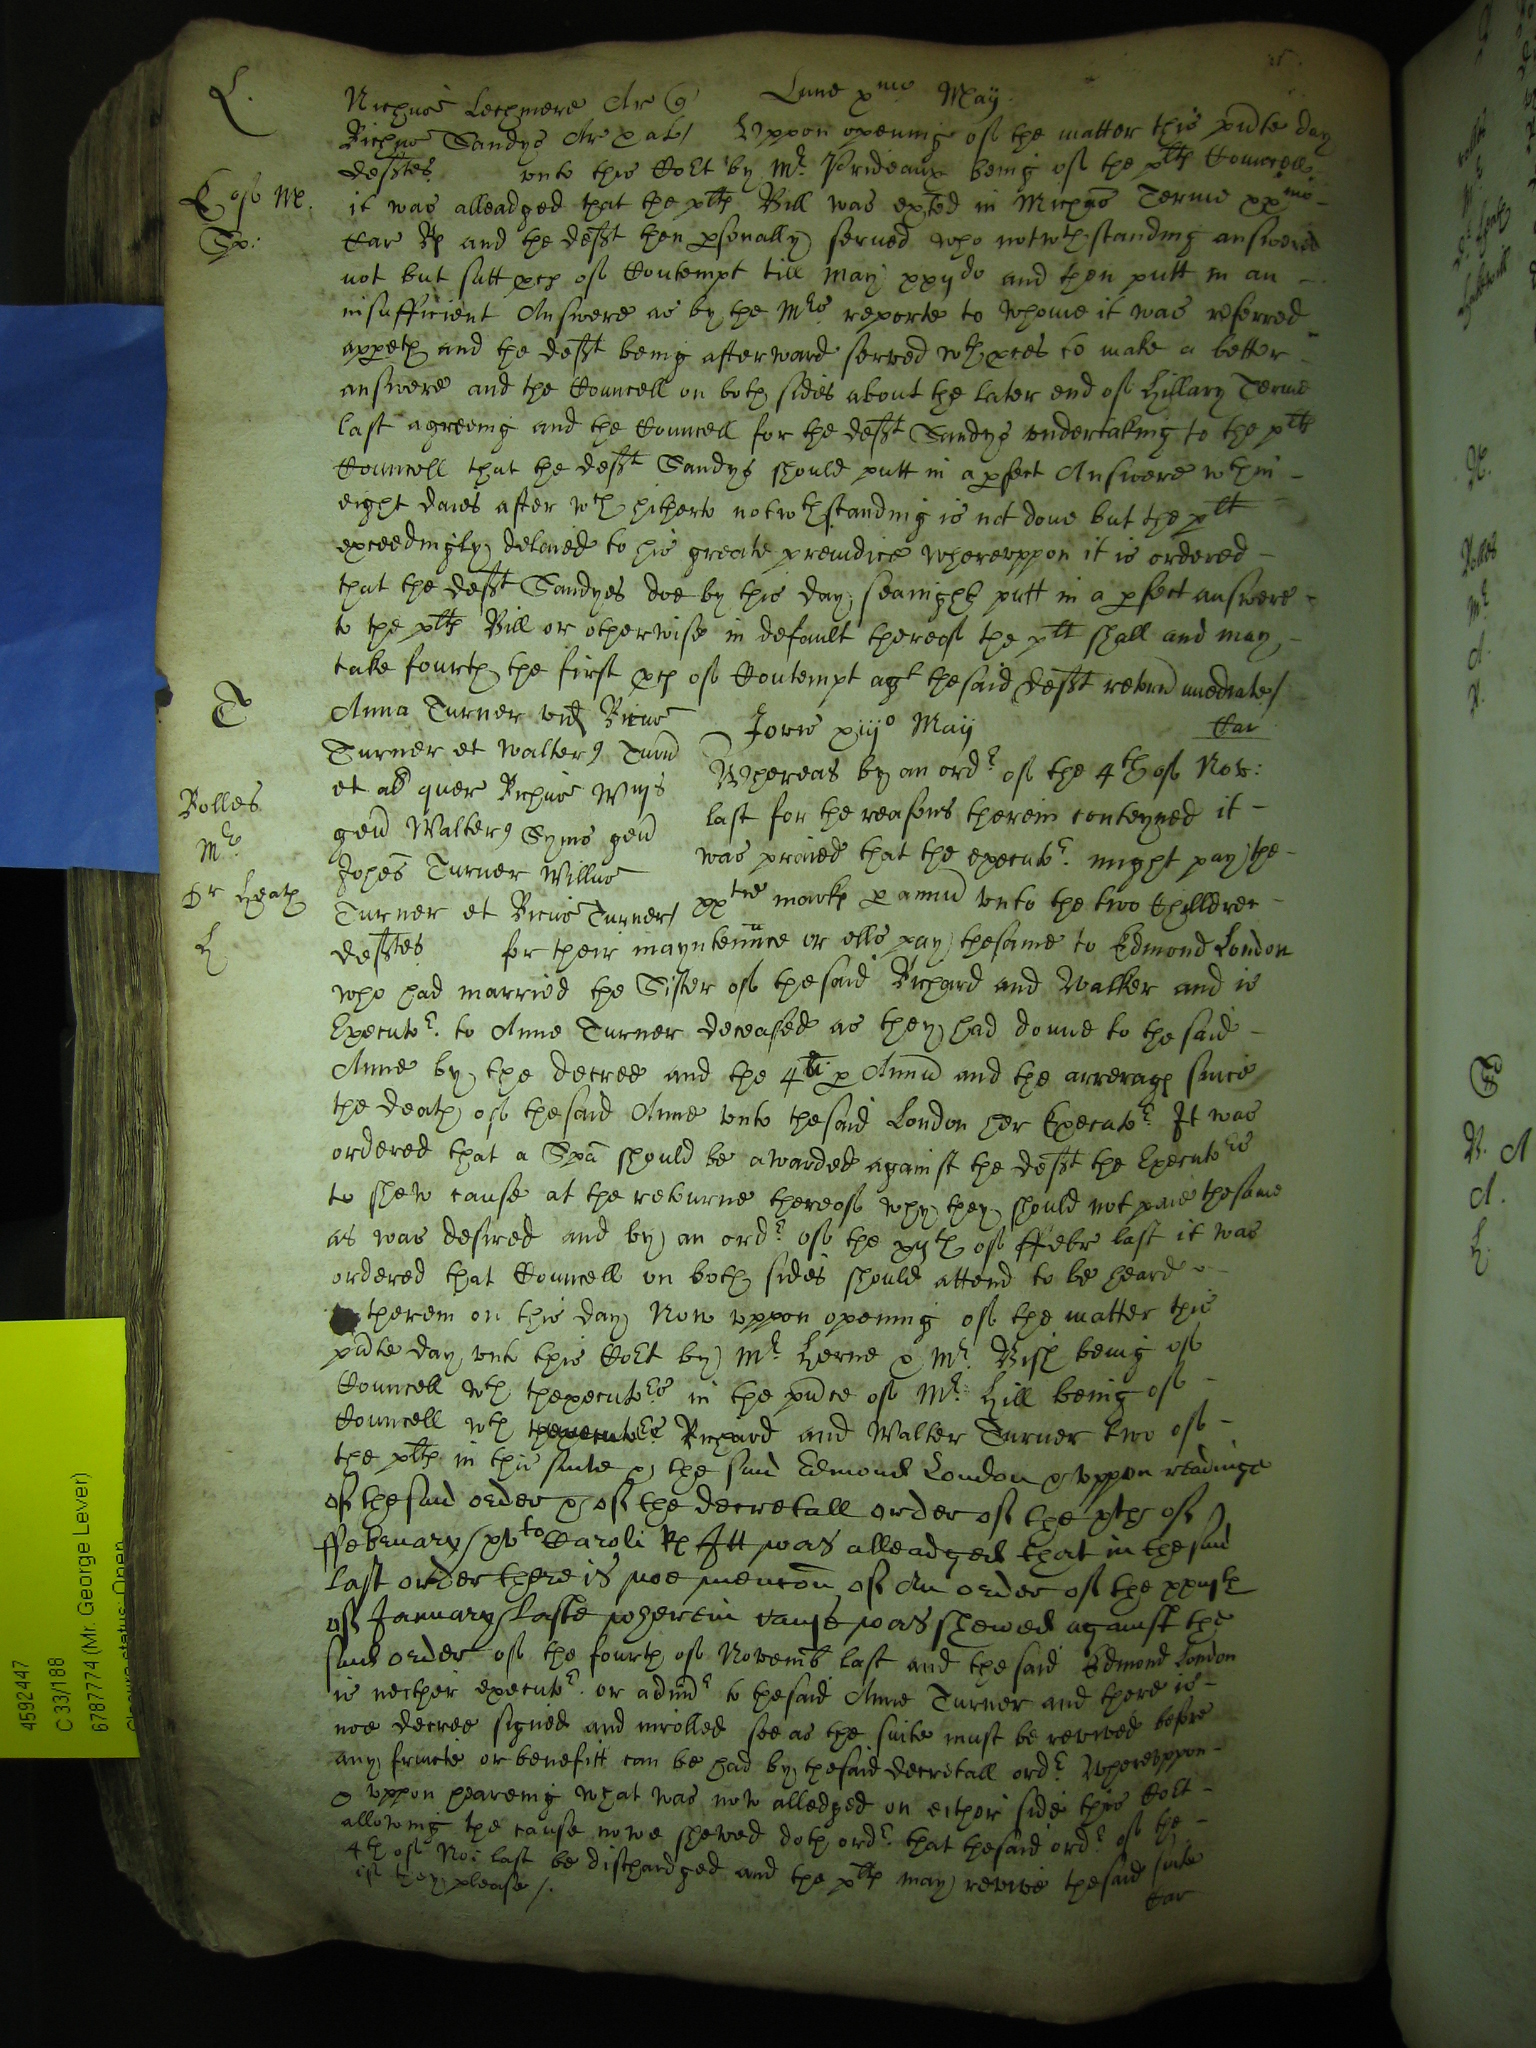 L.
Nichus Lechmere Ar q
Lune xmo Maij
Richus Sandys Ar & al/ Uppon opening of the matter this pnte day
defftes unto this Cort by Mr. Prideaux being of the plts Councell
K of Mr.
Sp:
it was alleadged that the plts Bill was exted in Michas Terme xxmo
Car R and the defft then psonally served who notwthstanding answered
not but satt pces of Contempt till May xxijdo and then putt in an
insufficient Answere as by the Mrs reporte to whome it was referred
appeth and the defft being afterward served wth pces to make a better
answere and the Councell on both sides about the later end of Hillary Terme
last agreeing and the Councell for the defft Sandys undertaking to the plts
Councell that the defft Sandys should putt in a pfect Answere wthin
eight daies after wch hitherto notwthstanding is not done but the plt
exceedingly delaied to his greate preiudice whereuppon it is ordered
that the defft Sandyes doe by this day seavnight putt in a pfect answere
to the plts Bill or otherwise in default thereof the plt shall and may
take fourth the first pces of Contempt agt the said defft retorn imediate/
T
Anna Turner vid Ricus
Jovis xiijo Maij
Car
Turner et Walterq Turn
Whereas by an ordr of the 4th of Nov:
Bolles
et al quer Richus Wyys
last for the reasons therein conteyned it
Mr
gen Walterq Syms gen
was praied that the executr. might pay the
Johes Turner Willus
Dr Heath
Turner et Ricus Turner/ xxtie marks p annu unto the two Chilldren
H
defftes for their mayntennce or ells pay thesame to Edmond London
who had married the Sister of the said Richard and Walter and is
Executr. to Anne Turner deceased as they had donne to the said
Anne by the decree and the 4li p Annu and the arrerages since
the death of thesaid Anne unto thesaid London her Executr. It was
ordered that a Spa should be awarded against the defft the Executrs
to shew cause at the retourne thereof why they should not paie thesame
as was desired and by an ordr of the xijth of ffebr last it was
ordered that Councell on both sides should attend to be heard
therein on this day Now uppon opening of the matter this
pnte day unto this Cort by Mr. Herne & Mr. being of
Councell wth thexecutrs in the pnce of Mr. Hill being of
Councell wth thexecutrs Richard and Walter Turner two of
the plts in this suite & the said Edmond London & uppon readinge
of thesaid order & of the decretall order of the xth of
ffebruary xvto Caroli R Itt was alleadged that in thesaid
last order there is noe mencon of An order of the
of January laste wherein cause was shewed against the
said order of the fourth of Novemb last and the said Edmond London
is neither executr. or admr to thesaid Anne Turner and there is
noe decree signed and inrolled soe as the suite must be revived before
any fruicte or benefitt can be had by thesaid decretall ordr. Whereuppon
& uppon heareing what was now alledged on either side this Cort
allowing the cause nowe shewed doth ordr. that thesaid ordr. of the
4th of Nov last be dischardged and the plts may revive thesaid suite
if they please/.
Car
4592447
C 33/188
6787774 (Mr. George Lever)
Closure status: Open